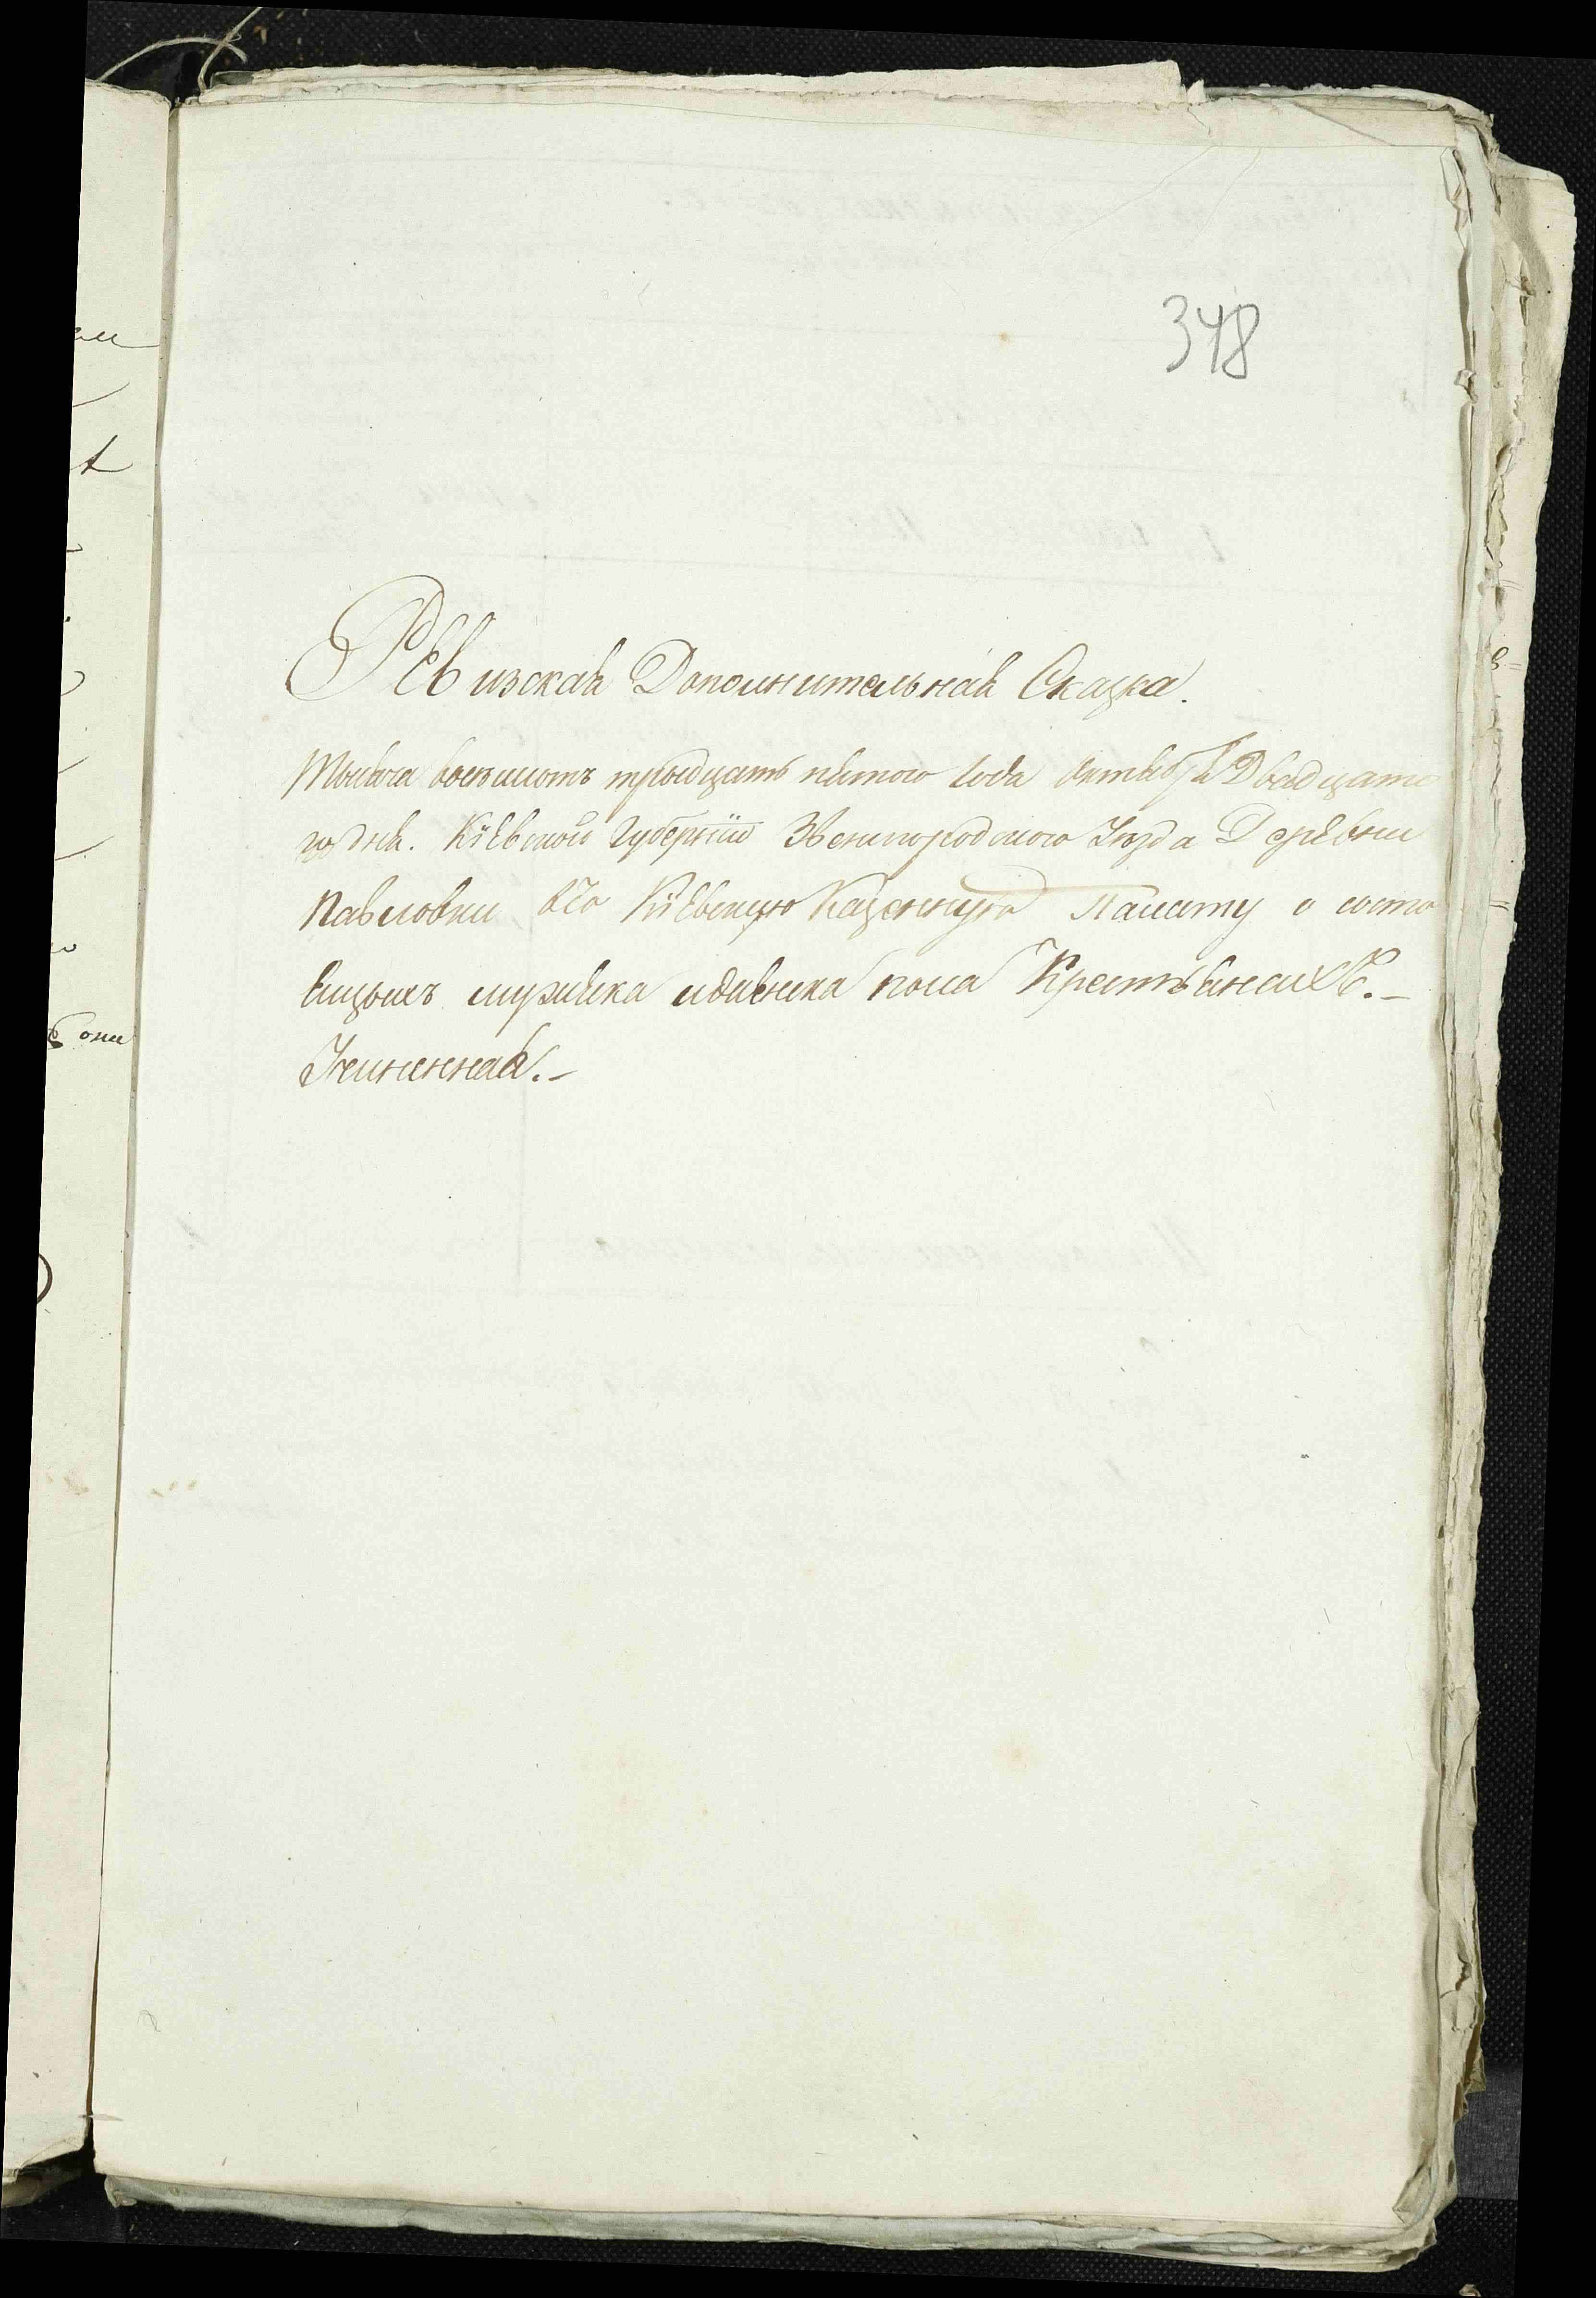 348
Ревизская Дополнительная Сказка.
Тысяча восемьсотъ тридцать пятого года Октября Двадцато
го дня. Кіевской Губерніи Звенигородского Уезда Деревни
Павловки Въ Кіевскую Казенную Палату о состо
ящыхъ мужеска и женска пола Крестьянахъ.-
Учиненная.-